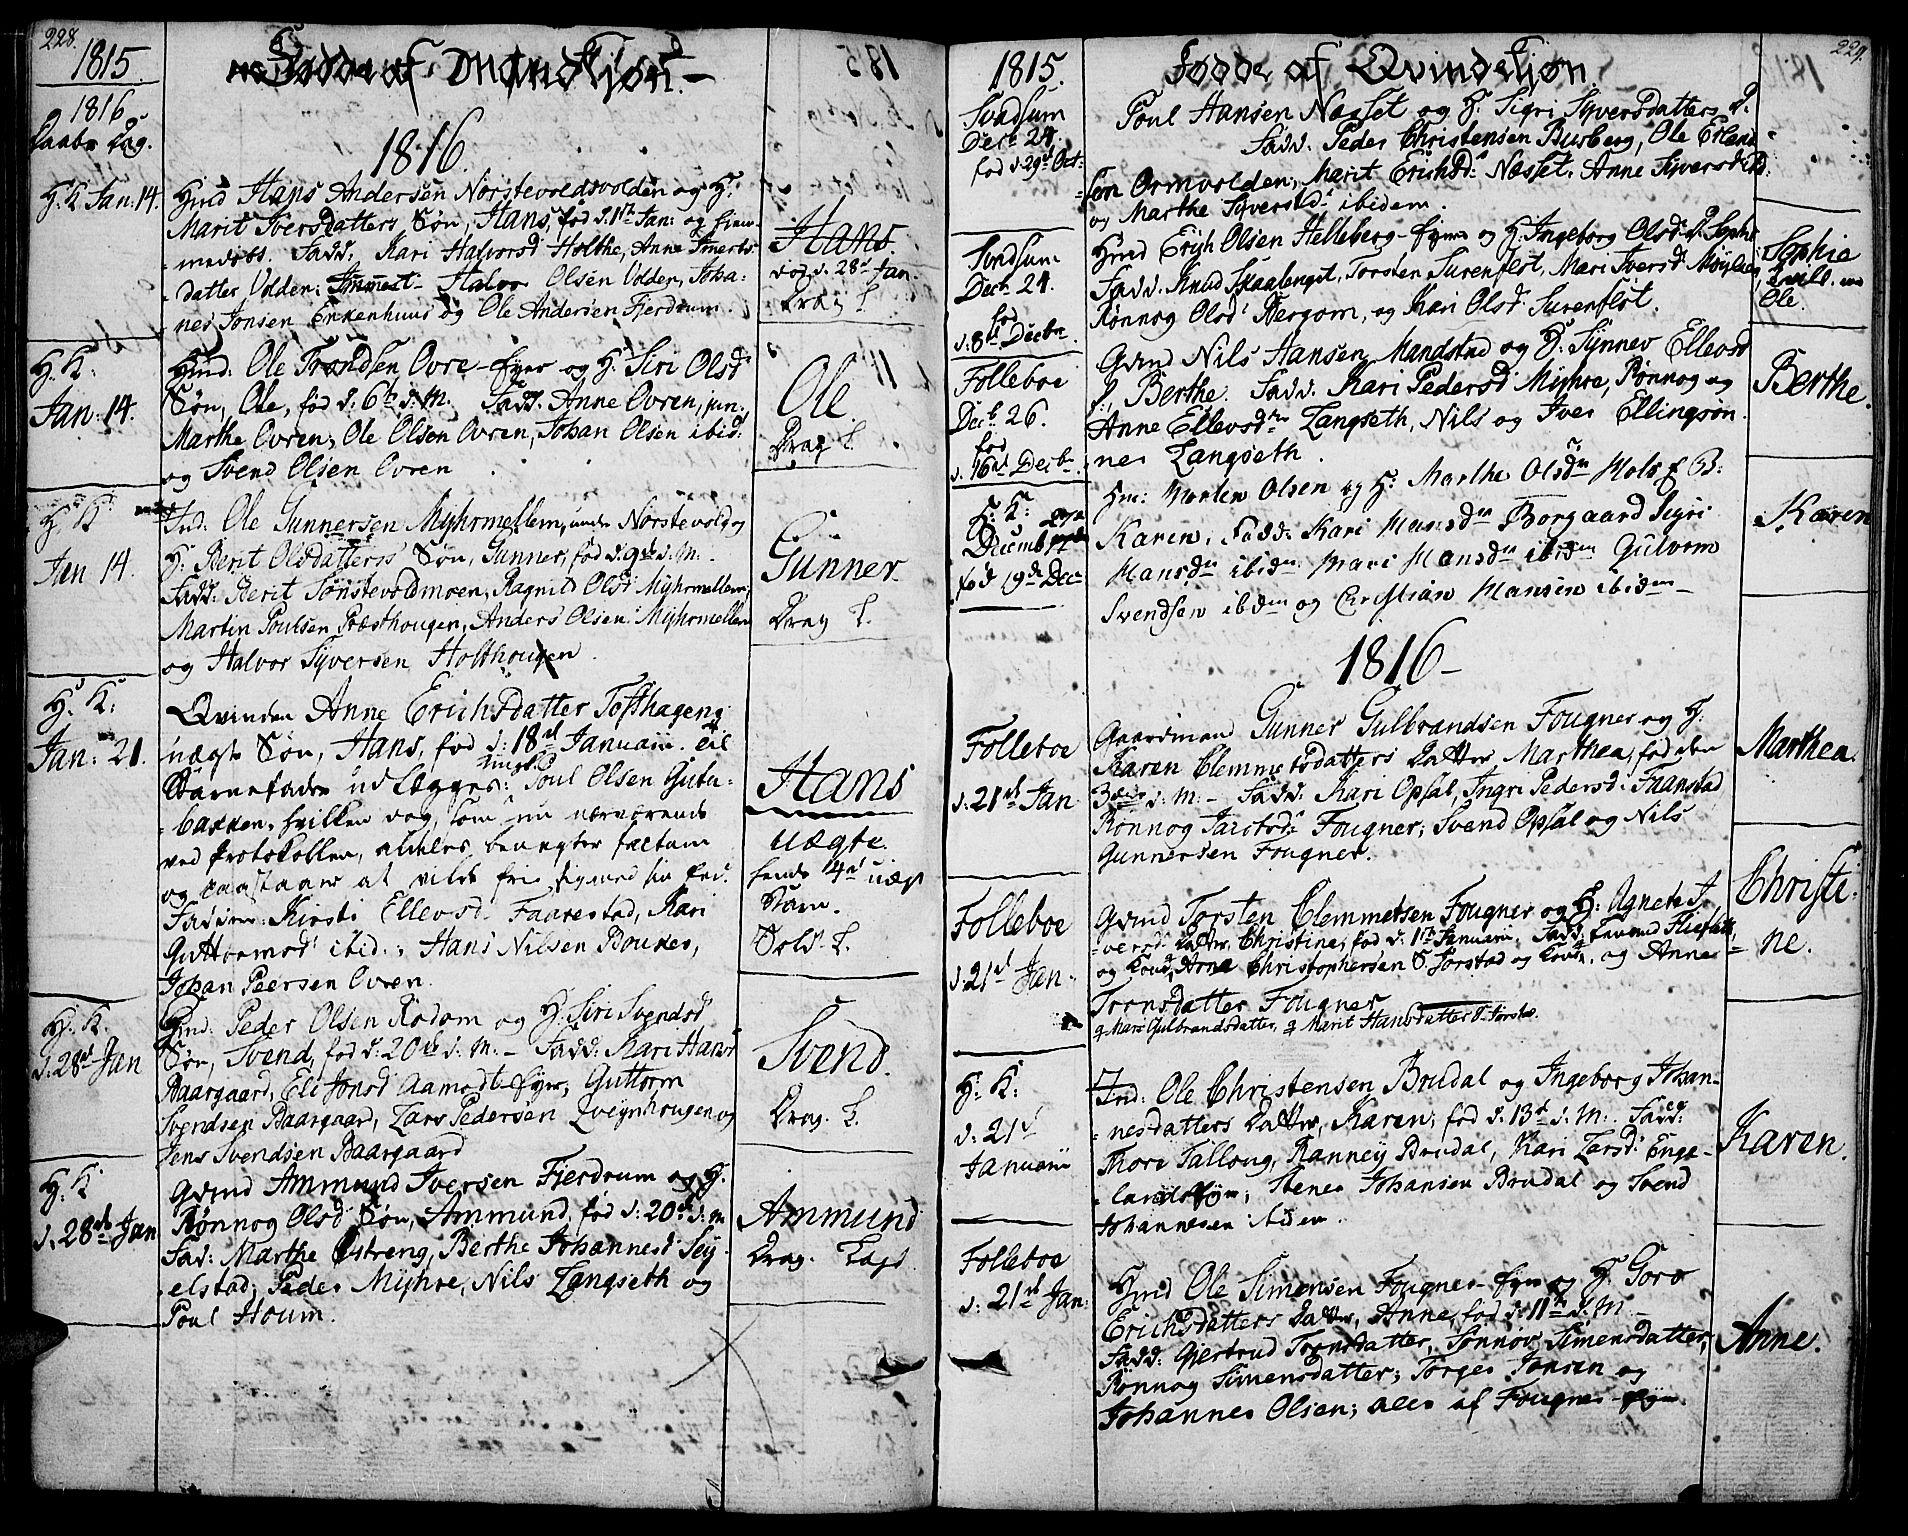 228.
1815.
Fødde af Mandkjøn.
1816
Daabs Dag.
1816.
H. K. Jan: 14.
Hmd Hans Andersen Norstevoldsvolden og H:
Marit Iversdatters Søn, Hans, fød d. 1ste Jan: og hiem-
medøbt. Fadd. Kari Halvorsd Holthe, Anne
datter Volden; Halvor Olsen Volden, Joha-
nes Jonsen Enkenhuus og Ole Andersen Fjerdrum.
Hans
døgd. 28d Jan.
Drag L.
H. K:
Jan: 14.
Hmd: Ole Trondsen Ovre-eyer og H: Siri Olsd
Søn, Ole, fød d. 6te d. M. Fadd. Anne Ovren, jun;
Marthe Ovren; Ole Olsen Ovren, Johan Olsen ibid:
og Svend Olsen Ovren
Ole
Drag L.
H: K
Jan 14.
Ind: Ole Gunnersen Myhrmellem, under Norstevold og
H. Berit Olsdatters Søn, Gunner, fød d. 9d d. M.
Fadd: Berit Sønstevoldmoen, Ragnild Olsd Myhrmellem;
Martin Poulsen Præsthougen, Anders Olsen Myhrmellem
og Halvor Syversen Holthougen.
Gunner
Drag L.
H. K:
Jan: 21.
Qvinden Anne Erichsdatter Tofthageng
uægte Søn, Hans, fød d: 18d Januarii. til
Barnefader udlægges: Poul Olsen Gutu-
bakken, hvilken dog, som nu nærværende
ved Protokollen, aldeles benegter factum
og paastaaer at vilde frie sig ved sin Eed.
Faddere: Kirsti Ellevsd. Faarestad, Kari
Guttormsd ibid.; Hans Nilsen Bouker,
Johan Peersen Ovren.
Hans
Uægte.
hendes 4d uægte
Barn.
Sold. L.
H. K.
d. 28d Jan
Hmd: Peder Olsen Rodom og H: Siri Svendsd
Søn, Svend, fød d. 20de d. M. - Fadd: Kari Hansd
Baargaard, Eli Jonsd Aamodt-eyer; Guttorm
Svendsen Baargaard, Lars Pedersen Qveynhougen og
Jens Svendsen Baargaard
Svend.
Drag. L.
H. K
d. 28de Jan
Grmd Ammund Iversen Fjerdrum og H.
Rønnog Olsd Søn, Ammund, fød d: 20de d: M
Fad: Marthe Østreng, Berthe Johannesd Sey-
elstad; Peder Myhre, Nils Langseth og
Poul Houm.
Ammund
Drag. Lagd.
229.
1815.
Fødde af Qvindekjøn
Svadsum
Decb 24.
fød d. 29d Oct:
Poul Hansen Næsset og H: Sigri Syversdatters D.
Fadd. Peder Christensen Busberg, Ole Erland-
sen Ormvolden; Marit Erichsd: Næsset, Anne Syversd ibid.
og Marthe Syversd: ibidem.
Svadsum
Decb 24.
fød
d. 8de Decbr
Hmd Erich Olsen Helleberg-eyer og H. Ingeborg Olsd: D. Sophie
Fadd. Knud Skaalenget, Torsten Surenfløt, Mari Iversd
Rønnog Olsd Bergom, og Kari Olsd: Surenfløt.
Sophie
Ole.
Folleboe
Decb 26.
fød
d. 16d Decbr.
Grmd Nils Hansen Mandstad og H: Synnev Ellevsd
D. Berthe. Fadd. Kari Pedersd Myhre, Rønnog og
Anne Ellevsdtr Langseth, Nils og Iver Ellingsøn-
ner Langseth.
Berthe.
H. K:
Decemb
fød 19de Dec
Hm: Morten Olsen og H: Marthe Olsdtr Hols D:
Karen. Fadd: Kari Hansdtr Borgaard Sigri
Hansdtr ibidm Mari Hansdtr ibidm Gulorm
Svendsen ibidm og Christian Hansen ibidm
Karen
1816
Folleboe
d. 21de Jan
Gaardmand Gunner Gulbrandsen Fougner og H:
Karen Clemmetsdatters Datter, Marthea, fød den
d. M. - Fadd. Kari Opsal, Ingri Pedersd. Faanstad
Rønnog Jarstad Fougner; Svend Opsal og Nils
Gunnersen Fougner.
Marthea.
Folleboe
d. 21d Jan.
Grmd Torsten Clemmetsen Fougner og H: Agnete I-
versd. Datter Christine, fød d: 1ste Januarii. Fadd:
og Christophersen S. Jørstad og Kone, og Anne
Tronsdatter Fougner
og Mari Gulbrandsdatter, og Marit Hansdatter
Christi-
ne.
H. K:
d. 21d
Januarii
Ind: Ole Christensen Brudal og Ingeborg Johan-
nesdatters Datter, Karen, fød d. 13d d. M: Fadd:
Thore Talloug, Ranney Brudal, Kari Larsd: Enge-
lands-eyer; Stener Johansen Brudal og Svend
Johannesen ibidem.
Karen.
Folleboe
d. 21de Jan:
Hmd Ole Simensen Fougner-eyer og H. Goro
Erichsdatters Datter, Anne, fød d. 11te d. M
Fadd: Gjertrud Tronsdatter, Synnøv Simensdatter,
Rønnog Simensdatter; Torger Jonsen og
Johannes Olsen; alle af Fougner-eyer.
Anne.